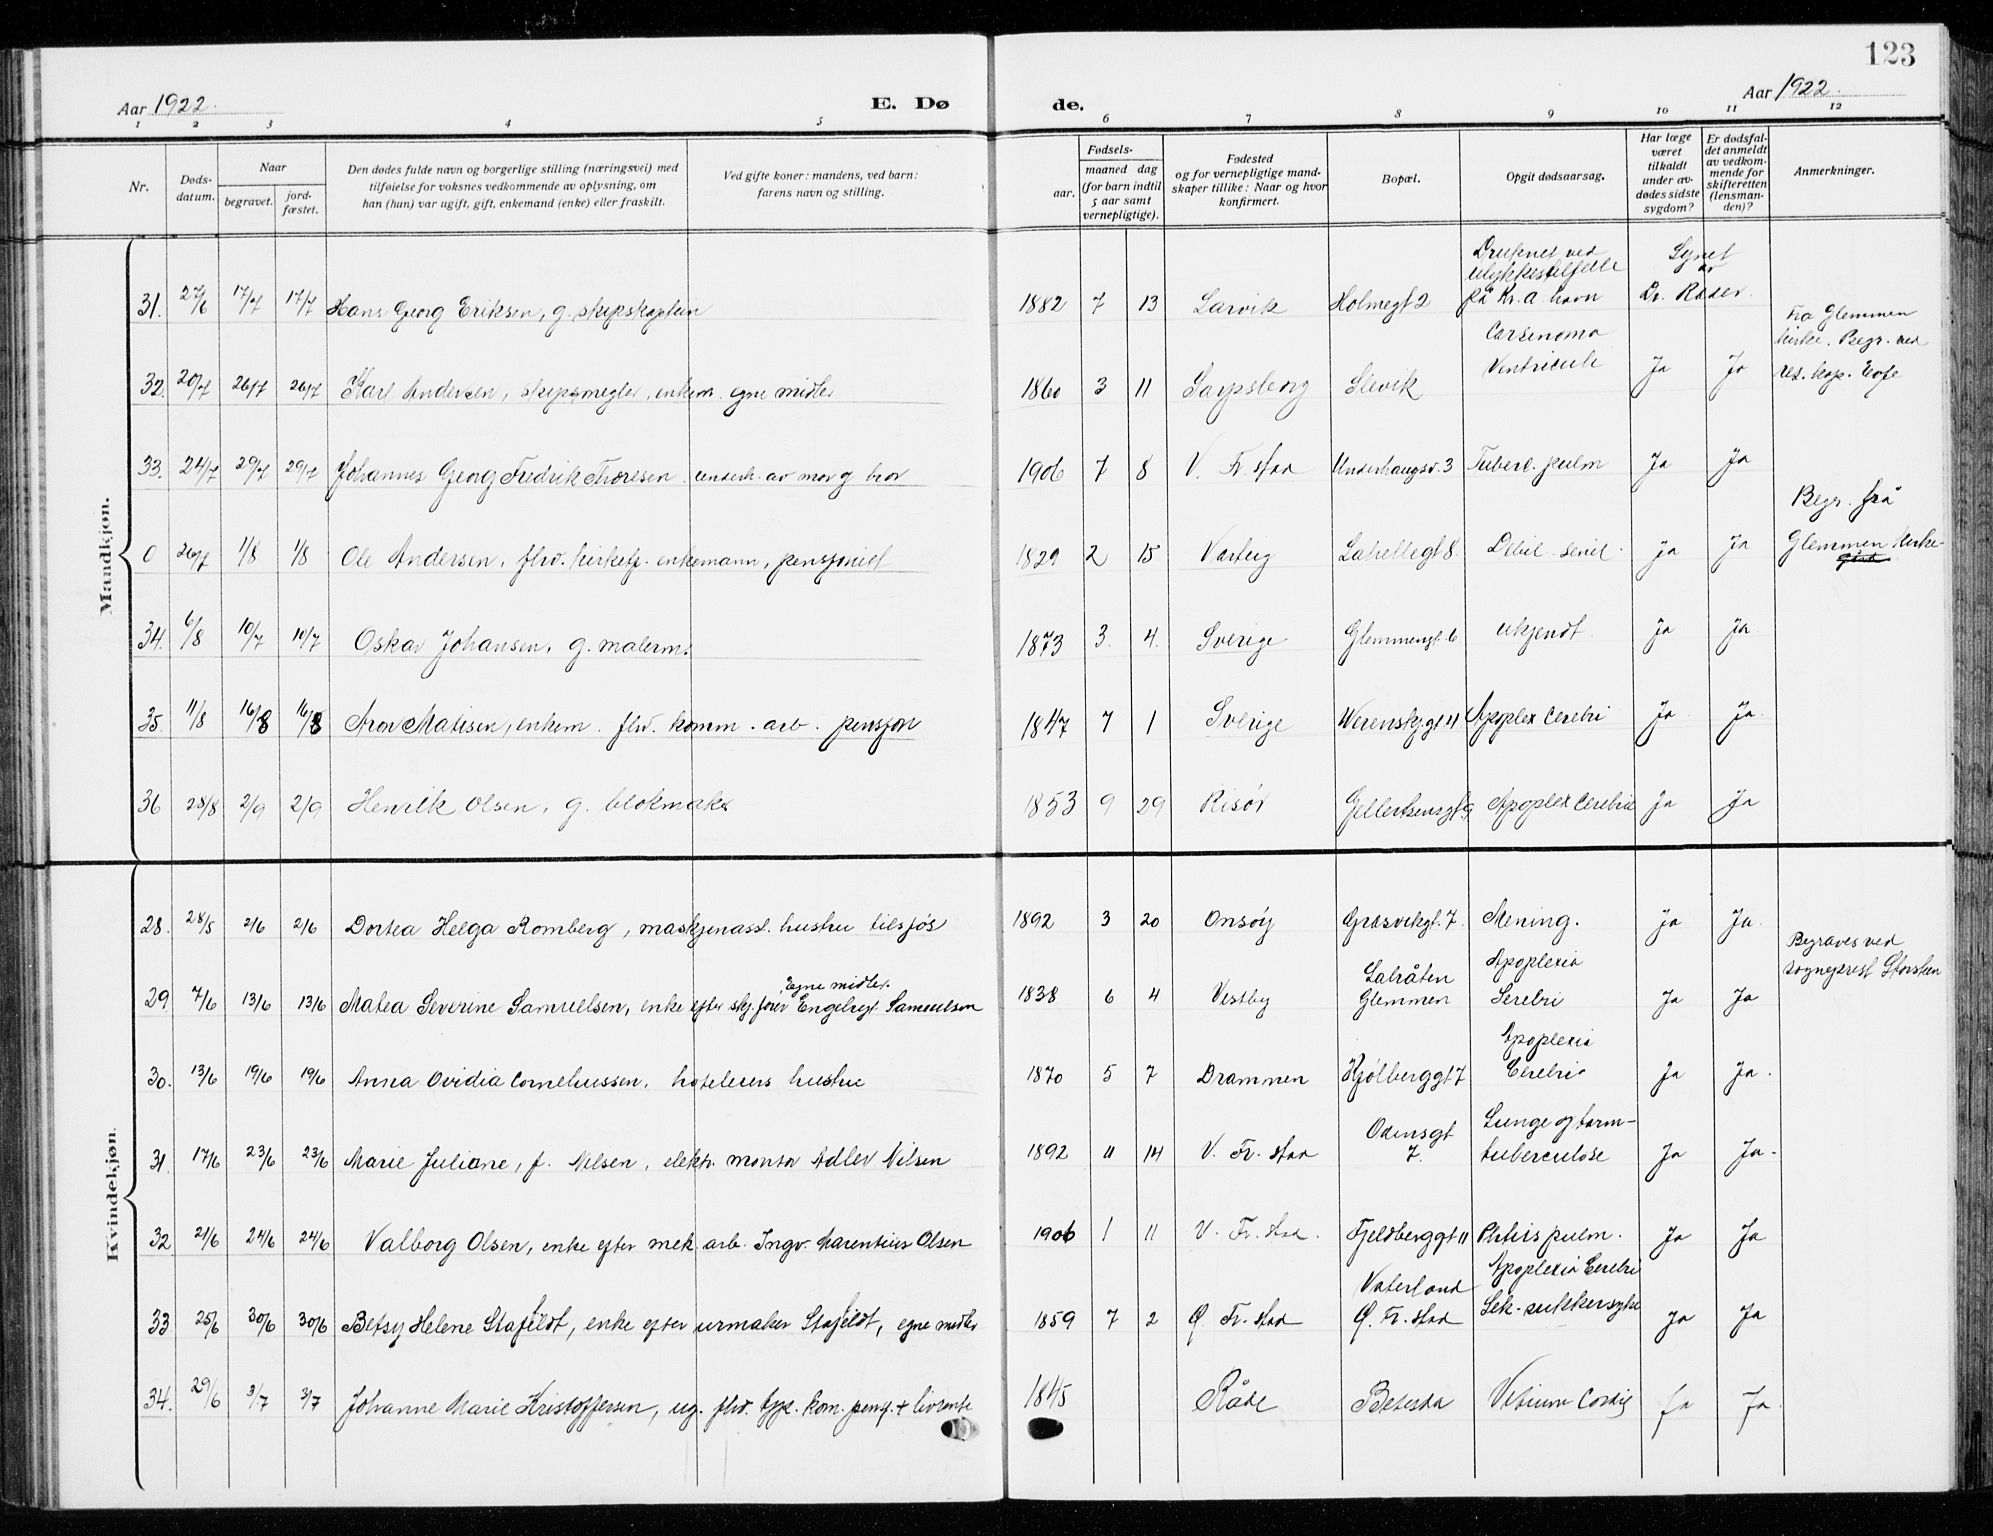 123
Aar 1922. E. Døde. Aar 1922.
1 2 3 4 5 6 7 8 9 10 11 12
Nr.
Døds-
datum.
Naar
begravet.
jord-
fæstet.
Den dødes fulde navn og borgerlige stilling (næringsvei) med
tilføielse for voksnes vedkommende av oplysning, om
han (hun) var ugift, gift, enkemand (enke) eller fraskilt.
Ved gifte koner: mandens, ved barn:
farens navn og stilling.
Fødsels-
aar.
maaned dag
(for barn indtil
5 aar samt
vernepligtige).
Fødested
og for vernepligtige mand-
skaper tillike: Naar og hvor
konfirmert.
Bopæl.
Opgit dødsaarsag.
Har læge
været
tilkaldt
under av-
dødes sidste
sygdom?
Er dødsfal-
det anmeldt
av vedkom-
mende for
skifteretten
(lensman-
den)?
Anmerkninger.
Mandkjøn.
31. 27/6 17/7 17/7 Hans Georg Eriksen, g. skipskaptein 1882 7 13 Larvik Holmegt 2 Druknet ved
ulykkestilfelle
på Kr.a. havn Synet
av
Dr. Røder.
32. 20/7 26/7 26/7 Karl Andersen, skipsmegler, enkem. egne midler 1860 3 11 Sarpsborg Slevik Carsenoma
Ventricule Ja Ja Fra Glemmen
kirke. Begr. ved
res. kap. Eofe
33. 24/7 29/7 29/7 Johannes Georg Fredrik Thoresen underh. av mor og bror 1906 7 8 V. Fr.stad Underhaugsv. 3 Tuberc. pulm Ja Ja
0 26/7 1/8 1/8 Ole Andersen, fhv. kirketj. enkemann, pensjonist 1829 2 15 Varteig Lahellegt 8. Debil. senil. Ja Ja Begr. frå
Glemmen kirke-
34. 6/8 10/7 10/7 Oskar Johansen, g. malerm. 1873 3. 4. Sverige Glemmengt. 6 ukjendt Ja Ja
35. 11/8 16/8 16/8 Aron Matisen, enkem. fhv. komm. arb. pensjon 1847 7 1 Sverige Werenskjgt 4 Apoplex Cerebri Ja Ja
36 28/8 2/9 2/9 Henrik Olsen, g. blokmaker 1853 9 29 Risör Gellertsensgt 9 Apoplex Cerebrie Ja Ja
Kvindekjøn.
28. 28/5 2/6 2/6 Dortea Helga Romberg, maskjenasst. hustru tilsjøs 1892 3 20 Onsöy Græsvikgt. 7. Mening. Ja Ja.
29. 7/6 13/6 13/6 Matea Severine Samuelsen, enke efter skj. fører Engelregt Samuelsen
Egne midler. 1838 6 4 Vestby Labråten
Glemmen Apoplexia
Serebri Ja Ja Begraves ved
sogneprest Storsteen
30. 13/6 19/6 19/6 Anna Ovidia Corneliussen, hoteleiers hustru 1870 5 7 Drammen Kjölberggt 7 Apoplexia
Cerebri Ja Ja.
31. 17/6 23/6 23/6 Marie Juliane, f. Nilsen, elektr. montør Adler Nilsen 1892 11 14 V. Fr.stad Odinsgt
7. Lunge og tarm-
tuberculose Ja Ja.
32 21/6 24/6 24/6 Valborg Olsen, enke efter mek. arb. Ingv. Marentius Olsen 1906 1 11 V. Fr.stad. Fjeldberggt 11 Phtisis pulm. Ja Ja
33 25/6 30/6 30/6 Betsy Helene Stafeldt, enke efter urmaker Stafeldt, egne midler 1859 7 2 Ø. Fr.stad Vaterland
Ø. Fr.stad Apoplexia Cerebri
Sek. sukkersyke Ja Ja
34. 29/6 3/7 3/7 Johanne Marie Kristoffersen, ug. fhv. tjp. kom. pensj. + livrente 1845 Råde Betesda Vitium Cordis Ja Ja.